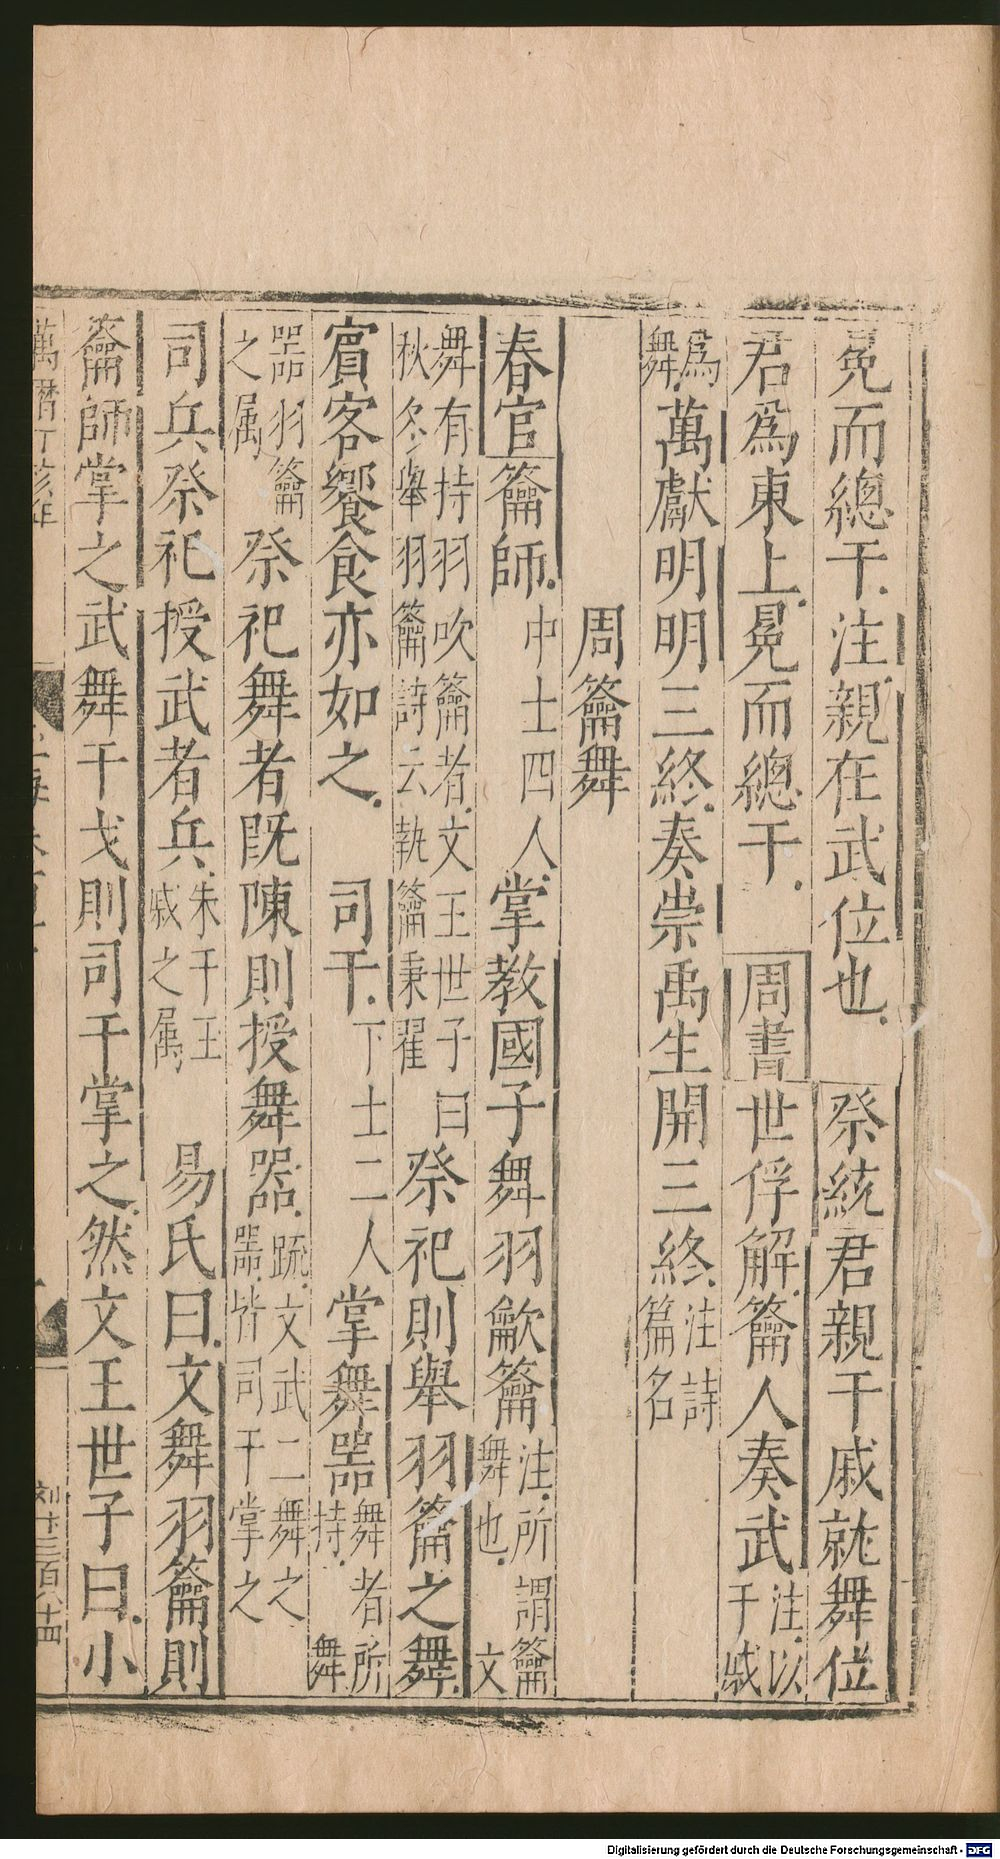 冕而總干注親在武位也　祭統君親干戚就舞位
君爲東上冕而總干　周書世俘解籥人奏武注以干戚
爲舞萬獻明明三終奏崇禹生開三終注詩篇名
周籥舞
春官籥師中士四人掌教國子舞羽龡籥注所謂籥舞也文
舞有持羽吹籥者文王世子曰秋冬學羽籥詩云執籥秉翟祭祀則舉羽籥之舞
賓客饗食亦如之　司干下士二人掌舞噐舞者所持舞
噐羽籥之属祭祀舞者旣陳則授舞噐䟽文武二舞之噐皆司干掌之
司兵祭祀授武者兵朱干玉戚之属　易氏曰文舞羽籥則
籥師掌之武舞干戈則司干掌之然文王世子曰小
萬曆丁亥年
Digitalisierung gefördert durch die Deutsche Forschungsgemeinschaft - DFG